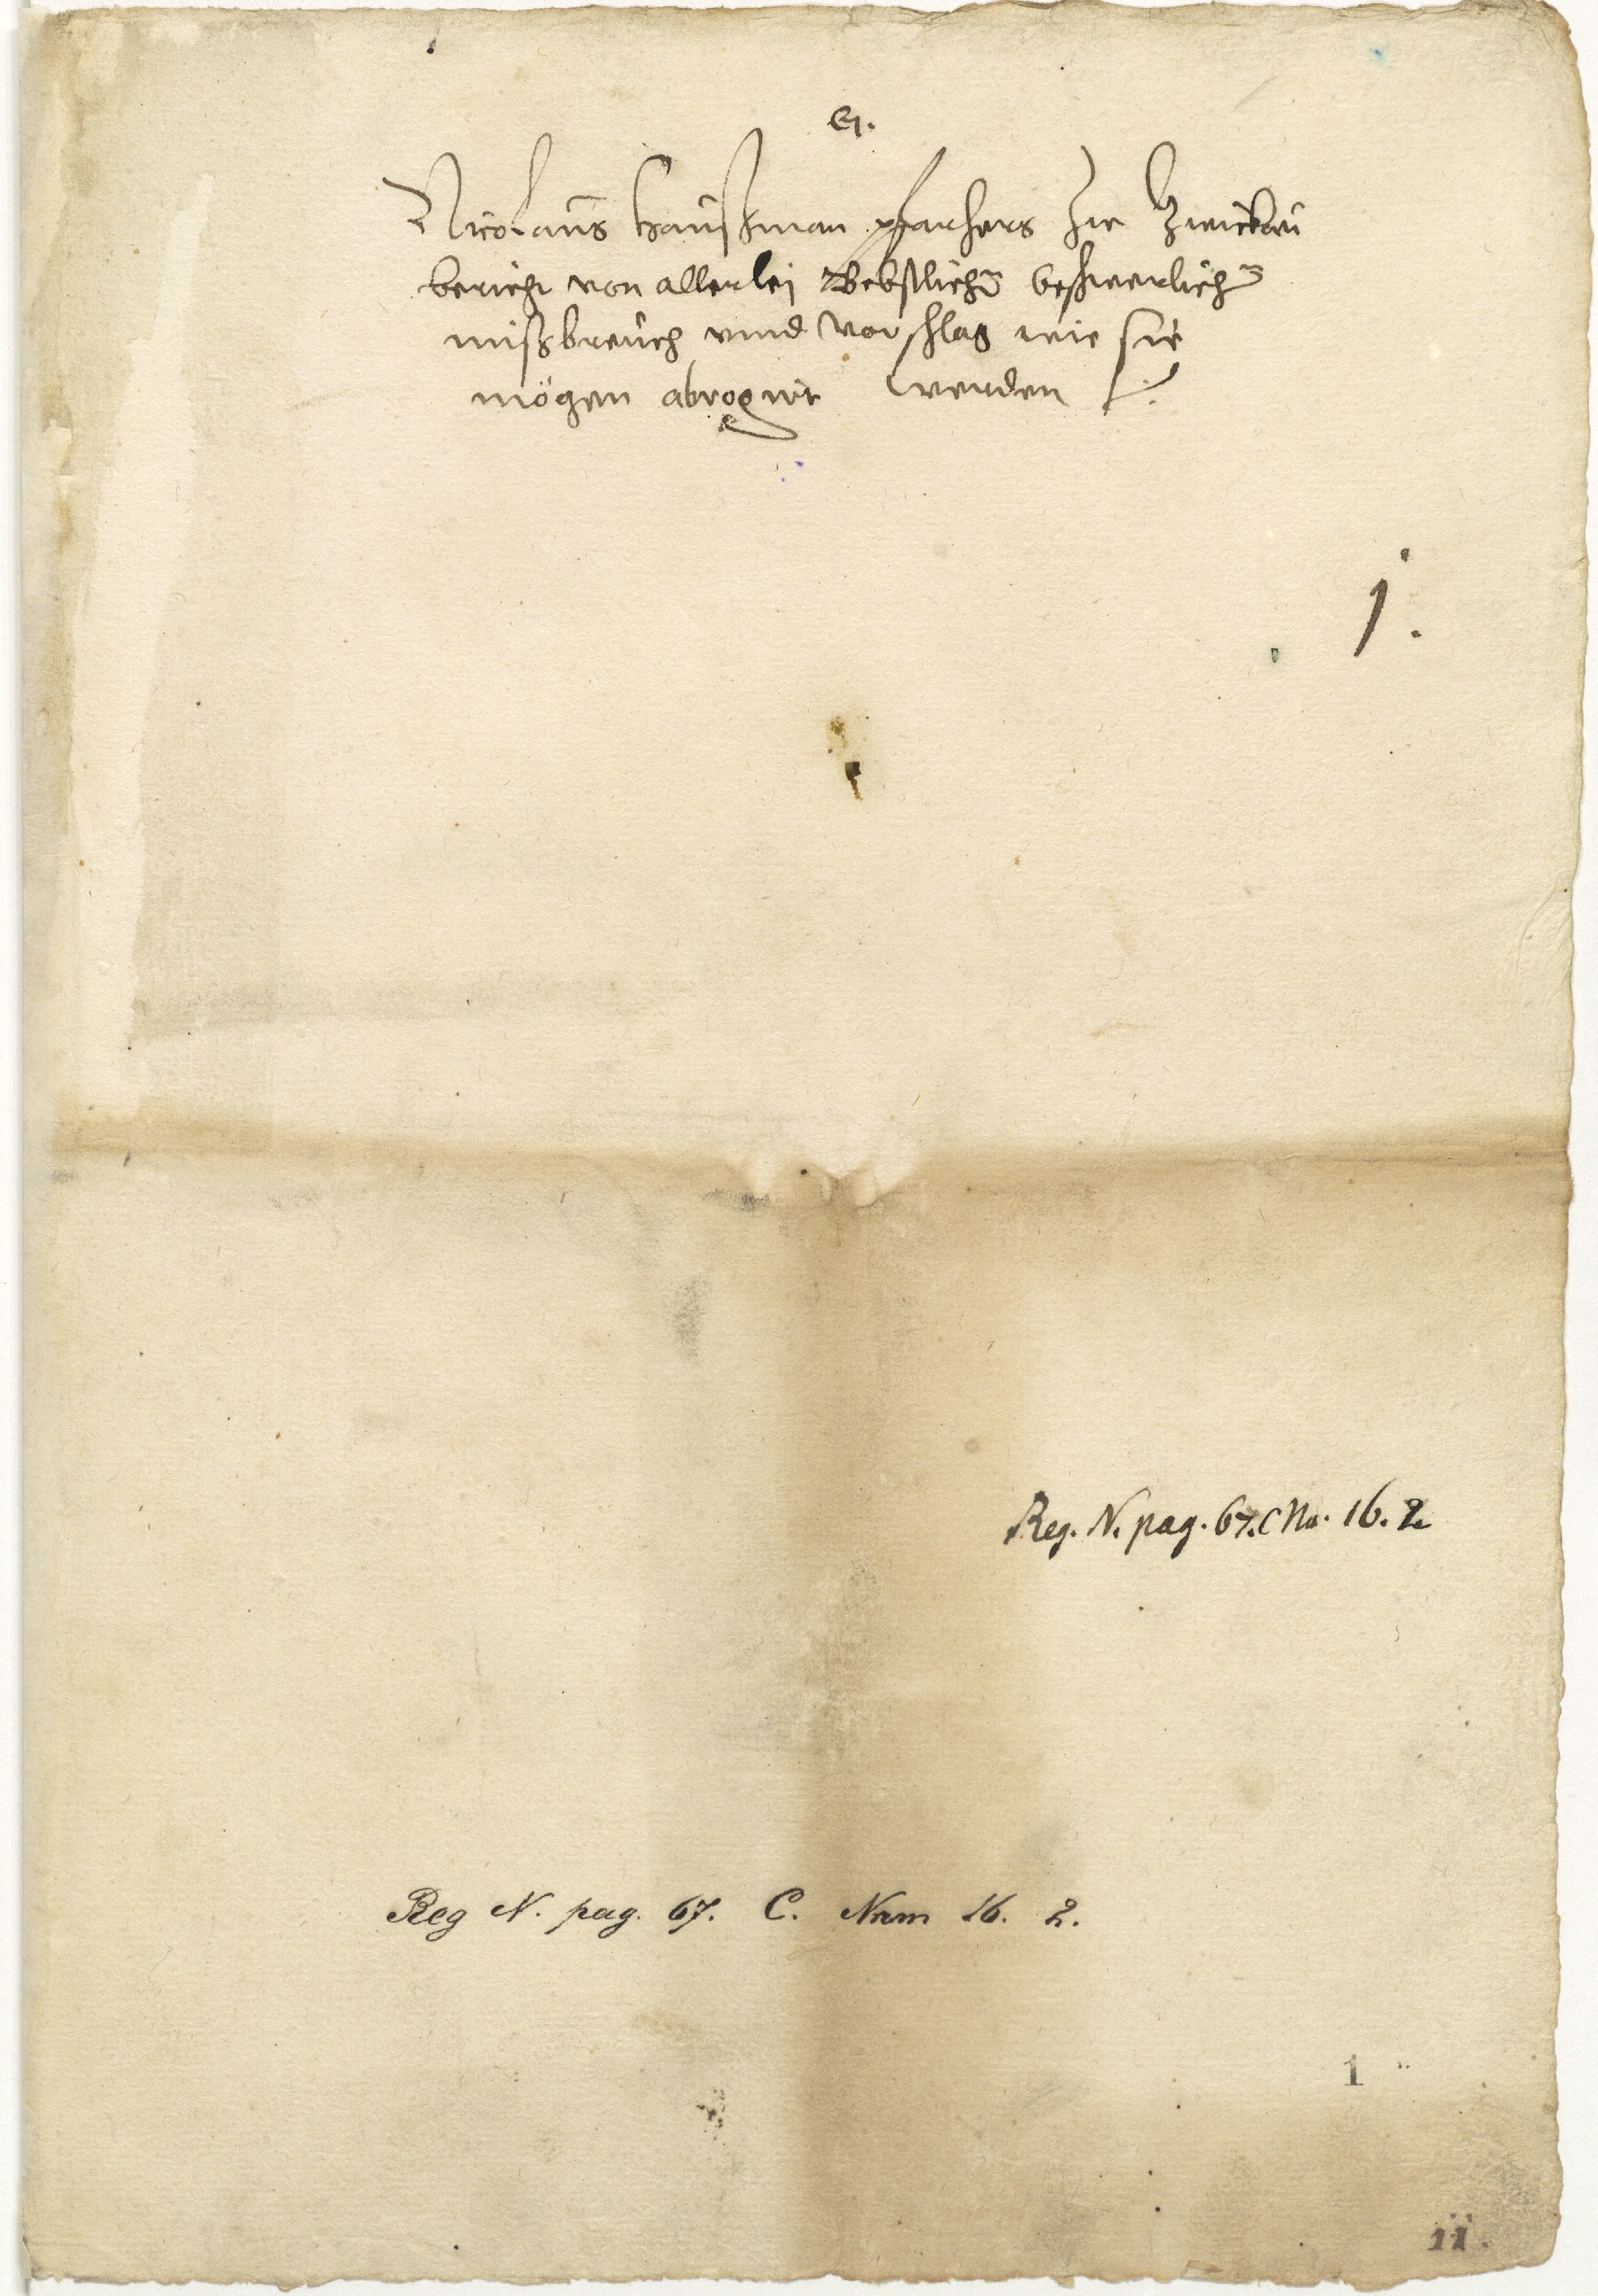 Nicolaus Haußman pfarhers zu Zwickau
bericht von allerlei Bebstlichen beschwerlichen
mißbreuch vnnd vorschlag wie sie
mögen abrogirt werden
j.
Reg. N. pag. 67. C No. 16. 2
Reg N. pag. 67. C. Num 16. 2.
1
11.